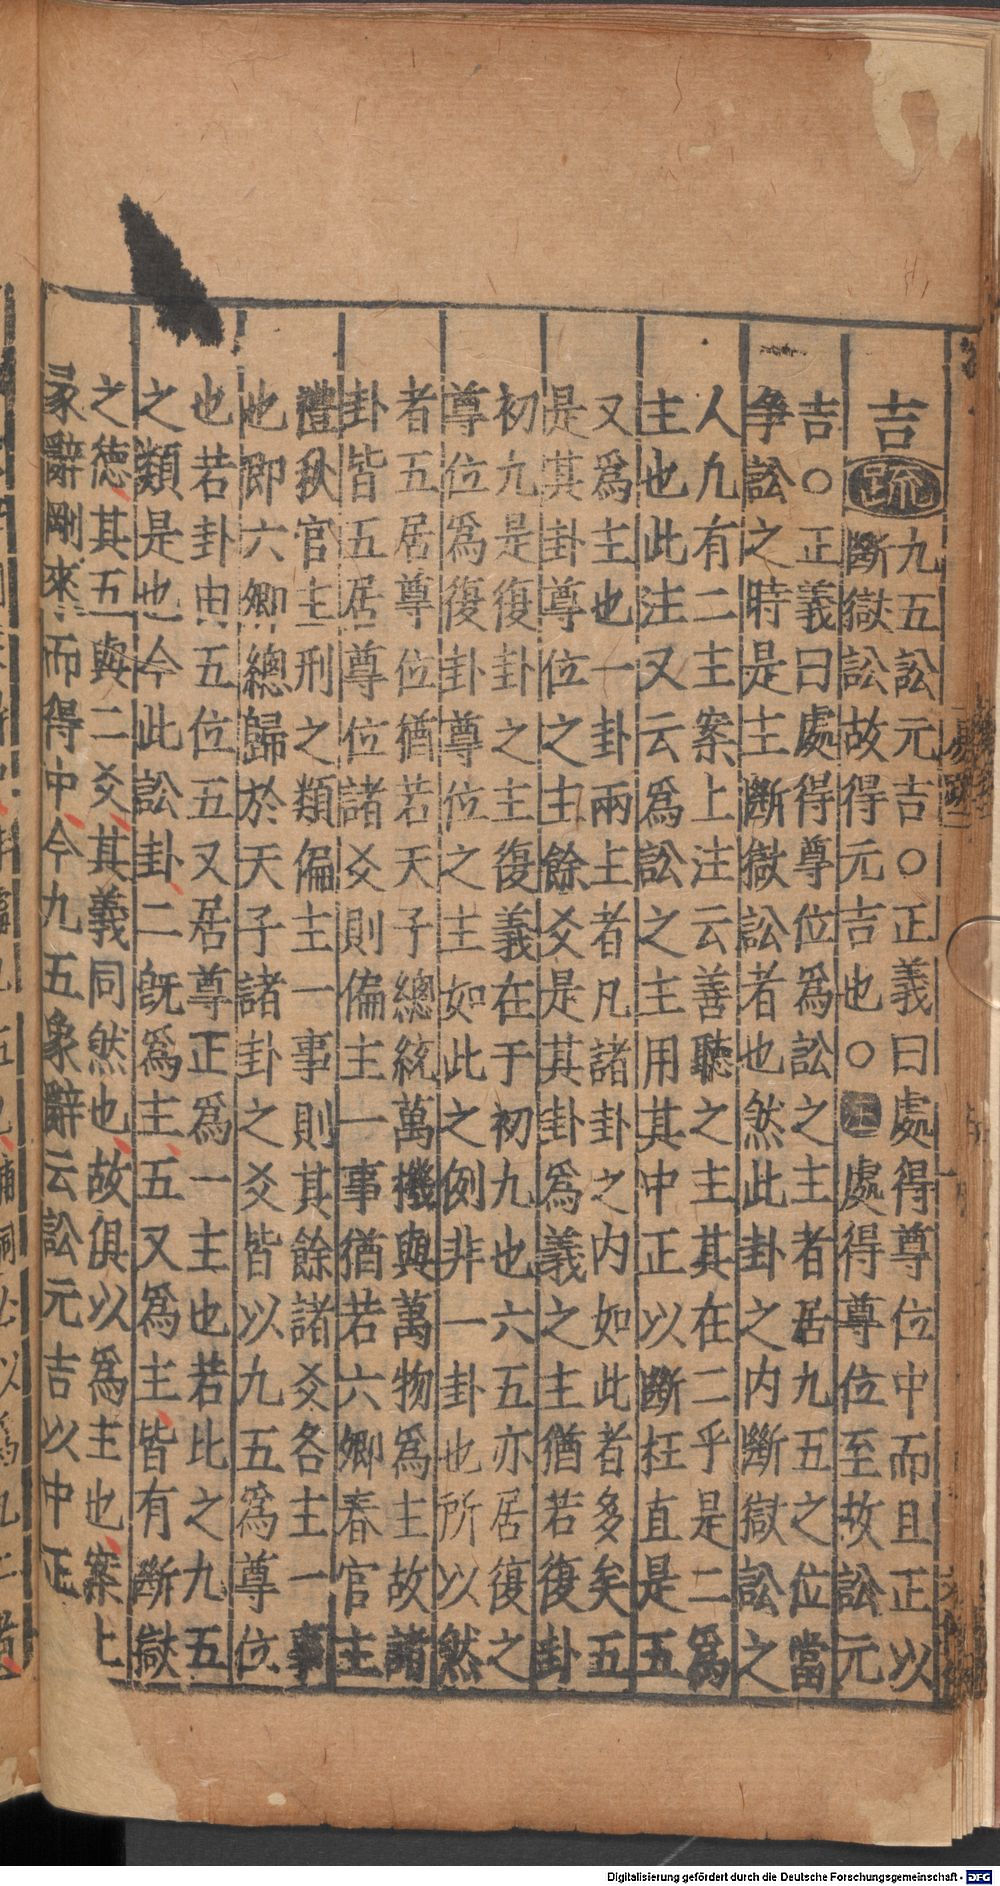 吉疏
九五訟元吉○正義曰處得尊位中而且正以
斷獄訟故得元吉也○注處得尊位至故訟元
吉○正義曰處得尊位爲訟之主者居九五之位當
爭訟之時是主斷獄訟者也然此卦之内斷獄訟之
人九有二主案上注云善聽之主其在二乎是二爲
主也此注又云爲訟之主用其中正以斷枉直是五
又爲主也一卦兩主者凡諸卦之内如此者多矣五
是其卦尊位之主餘爻是其卦爲義之主猶若復卦
初九是復卦之主復義在于初九也六五亦居復之
尊位爲復卦尊位之主如此之例非一卦也所以然
者五居尊位猶若天子總統萬機與萬物爲主故諸
卦皆五居尊位諸爻則偏主一事猶若六卿春官主
禮秋官主刑之類偏主一事則其餘諸爻各主一事
也即六卿總歸於天子諸卦之爻皆以九五爲尊位
也若卦由五位五又居尊正爲一主也若比之九五
之類是也今此訟卦二既爲主五又爲主皆有斷獄
之德其五與二爻其義同然也故俱以爲主也案上
彖辭剛來而得中今九五象辭云訟元吉以中正
Digitalisierung gefördert durch die Deutsche Forschungsgemeinschaft - DFG